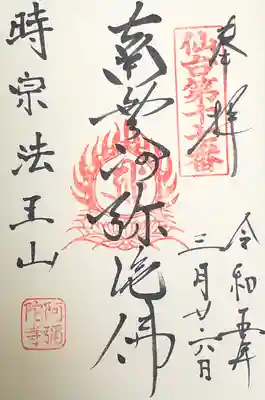 奉拝
仙台第十六番
令和五年
三月廿六日
南無阿弥陀佛
時宗法王山
阿彌
陀寺